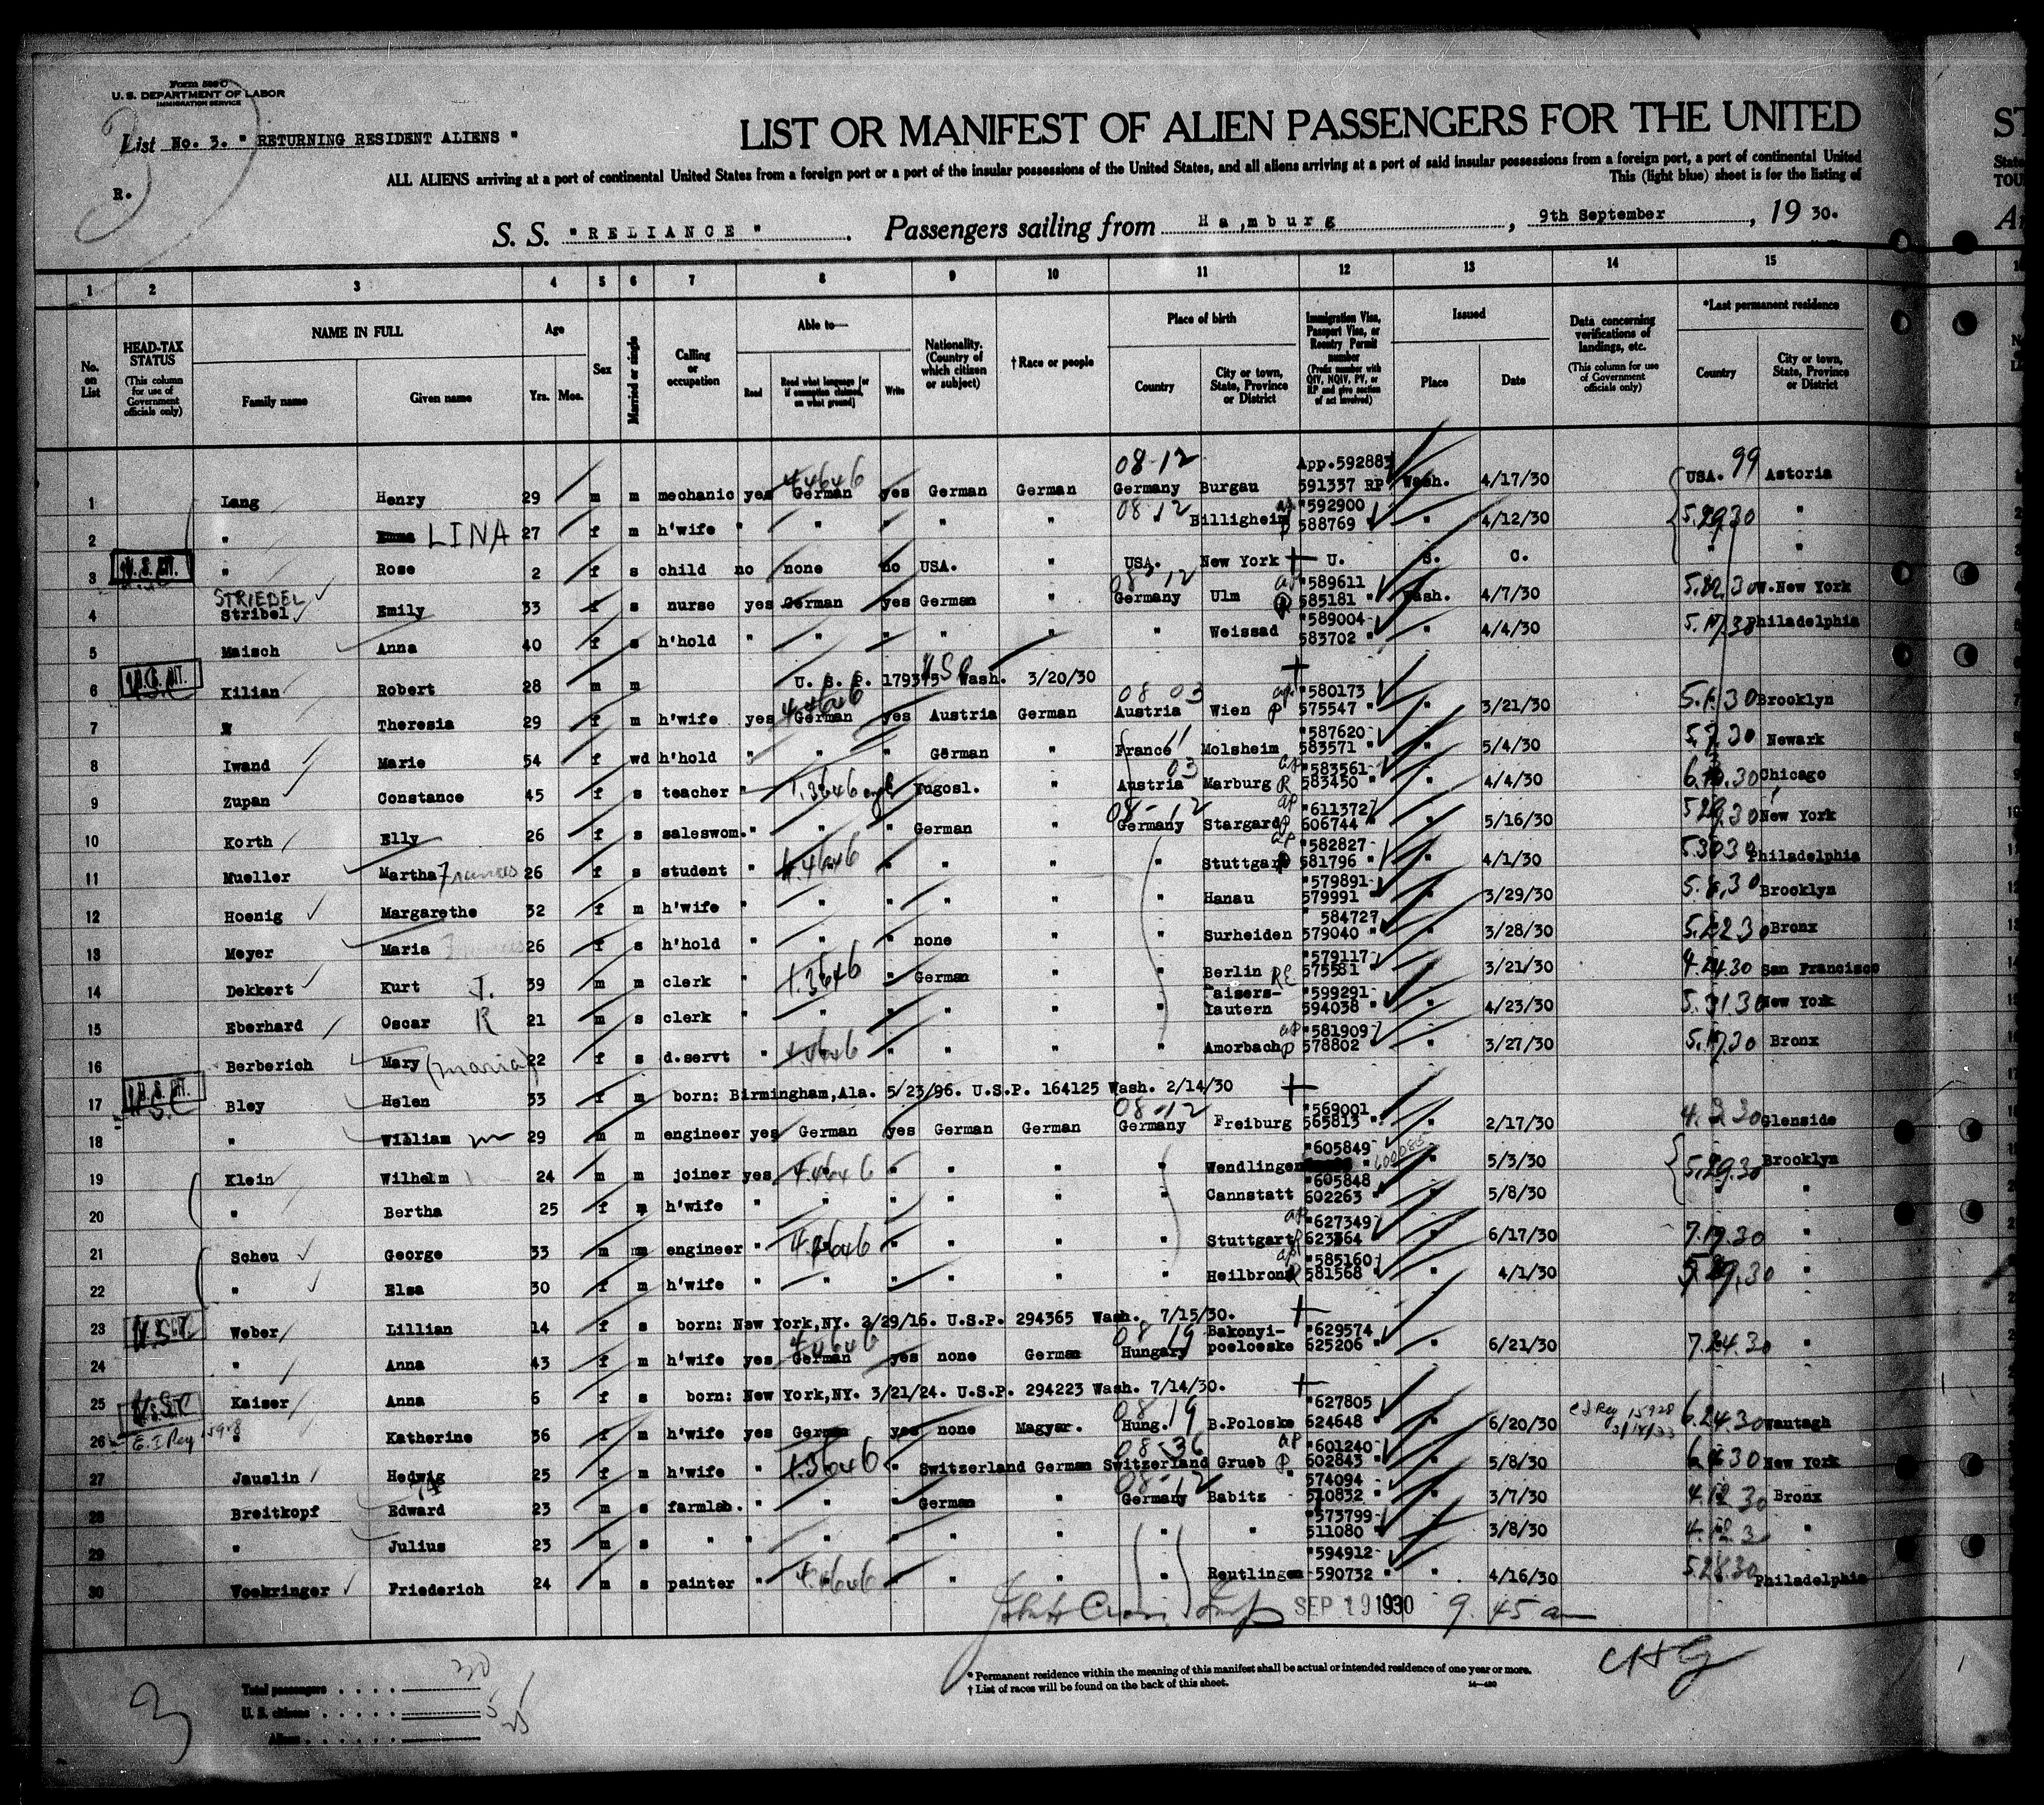 Form 500 C
U. S. DEPARTMENT OF LABOR
IMMIGRATION SERVICE
List No. 3. " RETURNING RESIDENT ALIENS "
R.
3
LIST OR MANIFEST OF ALIEN PASSENGERS FOR THE UNITED
ALL ALIENS arriving at a port of continental United States from a foreign port or a port of the insular possessions of the United States, and all aliens arriving at a port of said insular possessions from a foreign port, a port of continental United
This (light blue) sheet is for the listing of
S. S. "RELIANCE" Passengers sailing from Ha,mburg, 9th September, 1930.
1 2 3 4 5 6 7 8 9 10 11 12 13 14 15
No. on List
HEAD-TAX STATUS (This column for use of Government officials only)
NAME IN FULL Family name Given name
Age Yrs. Mos.
Sex
Married or single
Calling or occupation
Able to— Read Read what language [or if exemption claimed, on what ground] Write
Nationality. (Country of which citizen or subject)
† Race or people
Place of birth Country City or town, State, Province or District
Immigration Visa, Passport Visa, or Reentry Permit number (Prefix number with QIV, NQIV, PV, or RP and give section of act involved)
Issued Place Date
Data concerning verifications of landings, etc. (This column for use of Government officials only)
*Last permanent residence Country City or town, State, Province or District
1 Lang Henry 29 m m mechanic yes German yes German German 08-12 Germany Burgau App.592883 591337 RP Wash. 4/17/30 USA. 99 Astoria
2 " LINA 27 f m h'wife " " " " " 08-12 Billigheim "592900 588769 " " 4/12/30 5.29.30 "
3 " Rose 2 f s child no none no USA. " USA. New York U. S. C. " "
4 STRIEBEL Stribel Emily 33 f s nurse yes German yes German " 08-12 Germany Ulm "589611 585181 " Wash. 4/7/30 W.New York
5 Maisch Anna 40 f s h'hold " " " " " " Weissad "589004 583702 " " 4/4/30 Philadelphia
6 Kilian Robert 28 m m U. S. P. 179375 Wash. 3/20/30
7 " Theresia 29 f m h'wife yes German yes Austria German 08 03 Austria Wien "580173 575547 " " 3/21/30 5.1.30 Brooklyn
8 Iwand Marie 54 f wd h'hold " " " German " France 11 Molsheim "587620 583571 " " 5/4/30 Newark
9 Zupan Constance 45 f s teacher " Yugosl. " 03 Austria Marburg "583561 583450 " " 4/4/30 Chicago
10 Korth Elly 26 f s saleswom. " " " German " 08-12 Germany Stargard "611372 606744 " " 5/16/30 New York
11 Mueller Martha Frances 26 f s student " " " " " Stuttgart "582827 581796 " " 4/1/30 Philadelphia
12 Hoenig Margarethe 32 f m h'wife " " " " " " Hanau "579891 579991 " " 3/29/30 5.8.30 Brooklyn
13 Meyer Maria 26 f s h'hold " " " none " " Surheiden 584727 579040 " " 3/28/30 Bronx
14 Dekkert Kurt J. 39 m m clerk " " German " " Berlin "579117 575581 " " 3/21/30 4.24.30 San Francisco
15 Eberhard Oscar R 21 m s clerk " " " " " " Kaisers-lautern "599291 594038 " " 4/23/30 5.31.30 New York
16 Berberich Mary (Maria) 22 f s d.servt " " " " " Amorbach "581909 578802 " " 3/27/30 Bronx
17 Bley Helen 33 f m born: Birmingham,Ala. 5/23/96. U.S.P. 164125 Wash. 2/14/30
18 " William 29 m m engineer yes German yes German German 08-12 Germany Freiburg "569001 565813 " " 2/17/30 Glenside
19 Klein Wilhelm 24 m m joiner yes " " " " Wendlingen "605849 600085 " 5/3/30 5.29.30 Brooklyn
20 " Bertha 25 f m h'wife " " " " " " Cannstatt "605848 602263 " " 5/8/30 "
21 Scheu George 33 m m engineer " " " " " Stuttgart "627349 623364 " " 6/17/30 7.19.30 "
22 " Elsa 30 f m h'wife " " " " " " Heilbronn "585160 581568 " " 4/1/30 5.29.30 "
23 Weber Lillian 14 f s born: New York,NY. 2/29/16. U.S.P. 294365 Wash. 7/15/30.
24 " Anna 43 f m h'wife yes German yes none German 08 19 Hungary Bakonyi-poeloeske "629574 625206 " " 6/21/30 7.24.30 "
25 Kaiser Anna 6 f s born: New York,NY. 3/21/24. U.S.P. 294223 Wash. 7/14/30.
26 " Katherine 36 f m h'wife yes German yes none Magyar. 08 19 Hung. B.Poloske "627805 624648 " " 6/20/30 6.24.30 Wantagh
27 Jauslin Hedwig 25 f m h'wife " " Switzerland German 08-36 Switzerland Grueb "601240 602843 " " 5/8/30 New York
28 Breitkopf Edward 23 m s farmlab. " " " German " 08-12 Germany Babitz " 574094 510832 " " 3/7/30 Bronx
29 " Julius 23 m s " " " " " " " " "573799 511080 " " 3/8/30 "
30 Woehringer Friederich 24 m s painter " " " " " Reutlingen "594912 590732 " " 4/16/30 5.28.30 Philadelphia
SEP 19 1930 9. 45 am
Total passengers 30
U. S. citizens 5
Aliens 25
3
* Permanent residence within the meaning of this manifest shall be actual or intended residence of one year or more.
† List of races will be found on the back of this sheet.
14—430